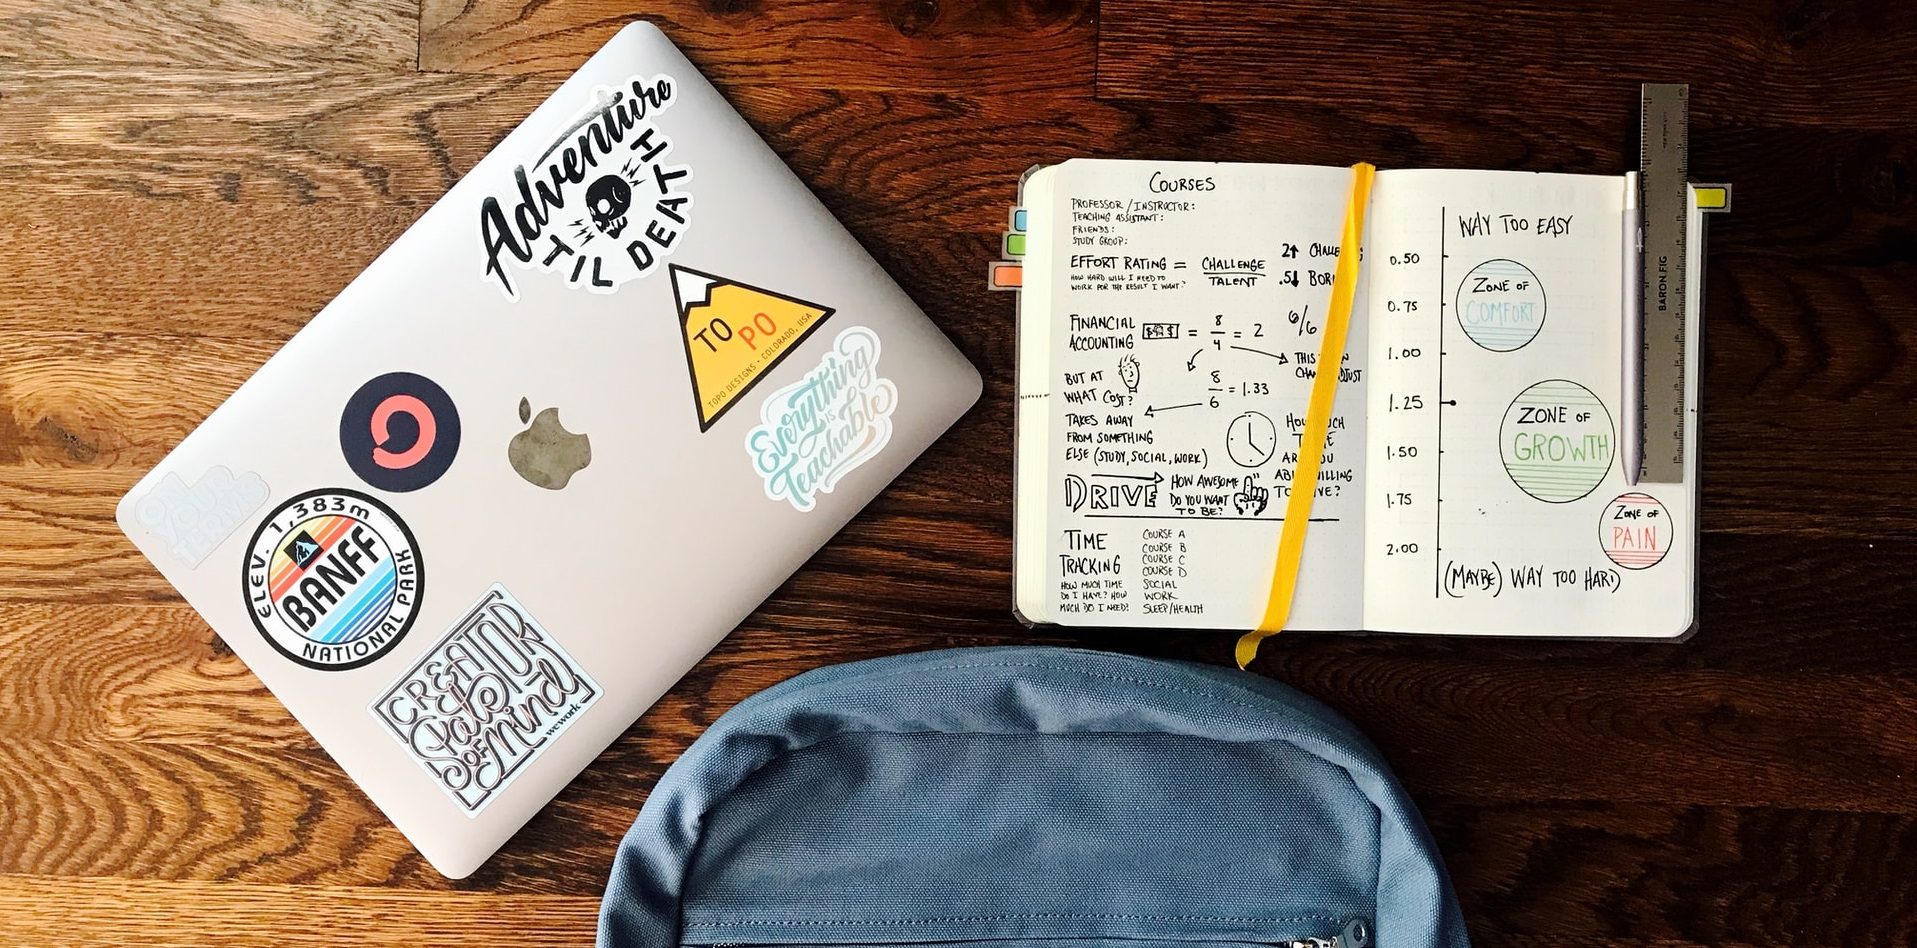 Adventure
TIL DEATH
TO PO
TOPO DESIGNS • COLORADO, USA
Everything
is
Teachable
ON
YOUR
TERMS
ELEV. 1,383m
BANFF
NATIONAL PARK
CREATOR
State
OF Mind
wework
COURSES
PROFESSOR/INSTRUCTOR:
TEACHING ASSISTANT:
FRIENDS:
STUDY GROUP:
EFFORT RATING = CHALLENGE
TALENT
HOW HARD WILL I NEED TO
WORK FOR THE RESULT I WANT?
2↑
.5↓
FINANCIAL
ACCOUNTING
$$$ = 8/4 = 2
6/6
THIS
8/6 = 1.33
BUT AT
WHAT COST?
TAKES AWAY
FROM SOMETHING
ELSE (STUDY, SOCIAL, WORK)
DRIVE
HOW AWESOME
DO YOU WANT
TO BE?
TIME
TRACKING
HOW MUCH TIME
DO I HAVE? HOW
MUCH DO I NEED?
COURSE A
COURSE B
COURSE C
COURSE D
SOCIAL
WORK
SLEEP/HEALTH
WAY TOO EASY
0.50
0.75
1.00
1.25
1.50
1.75
2.00
ZONE OF
COMFORT
ZONE OF
GROWTH
ZONE OF
PAIN
(MAYBE) WAY TOO HARD
BARON FIG